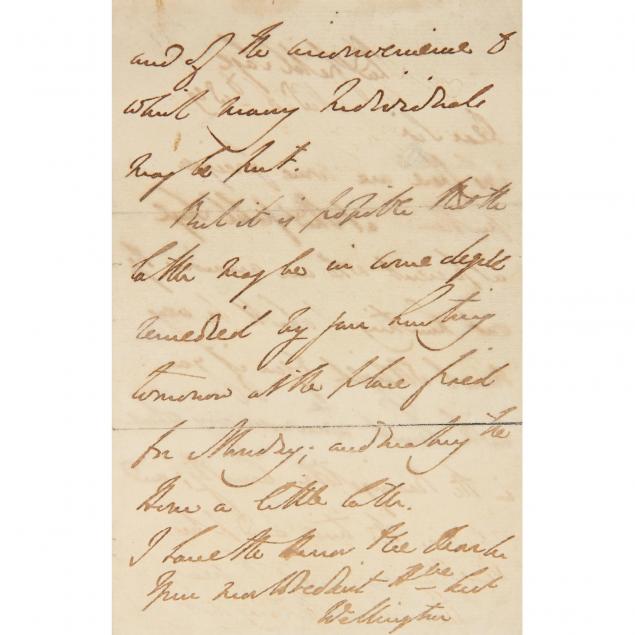 and of the inconvenience to
which many Individuals
may be put.
But it is possible that the
latter may be in some degree
remedied by your hunting
tomorrow at the place fixed
for Monday; and making the
Hour a little later.
I have the Honor to be Dear Sir
Your most obedient Hble Servt
Wellington